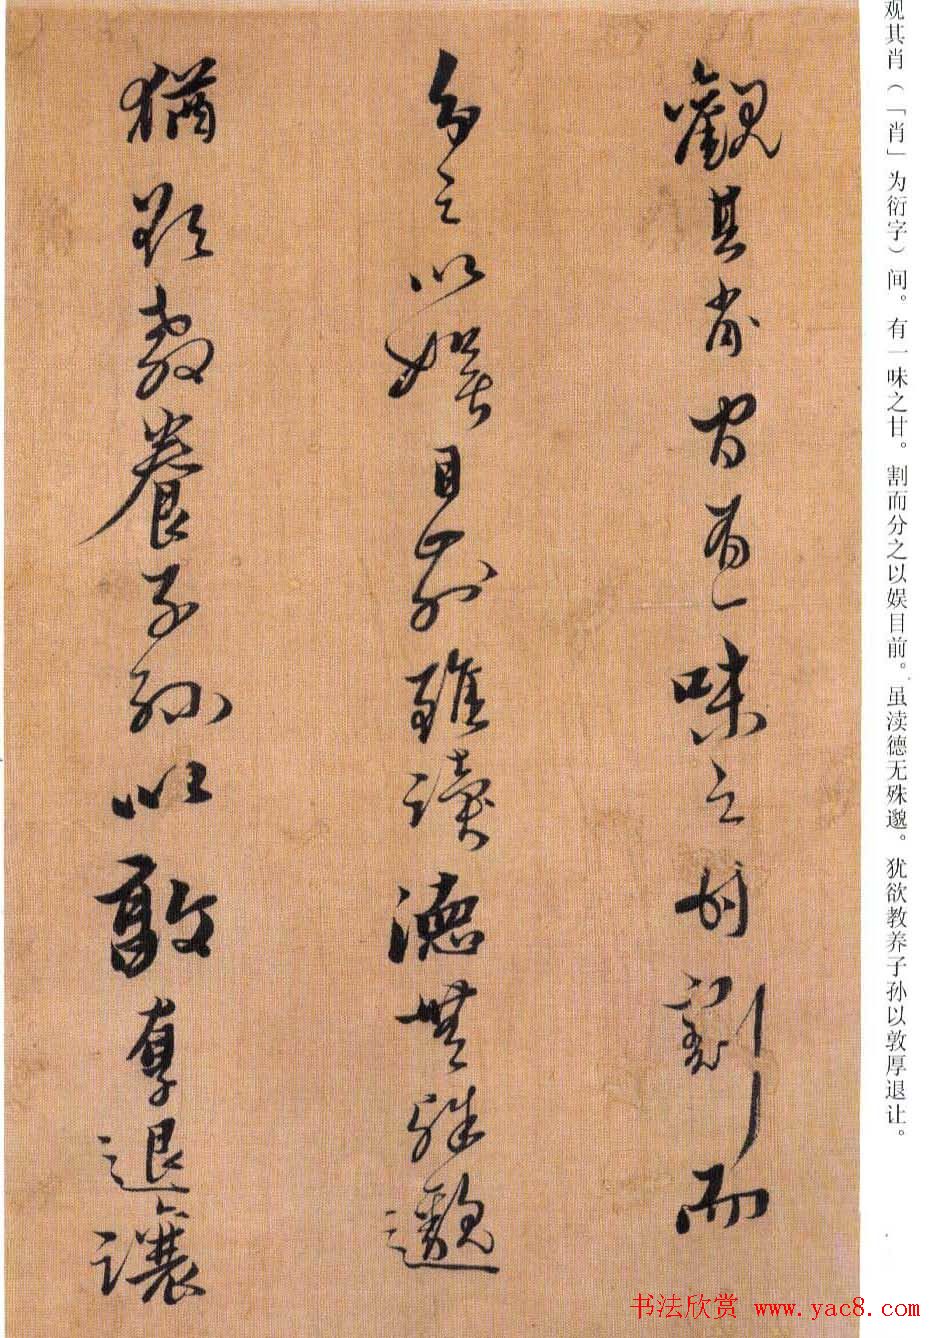 观其肖（「肖」为衍字）间。有一味之甘。割而分之以娱目前。虽渎德无殊邈。犹欲教养子孙以敦厚退让。
觀其肖間有一味之甘割而
分之以娛目前雖讀德無殊邈
猶欲教養子孫以敦厚退讓
书法欣赏 www.yac8.com